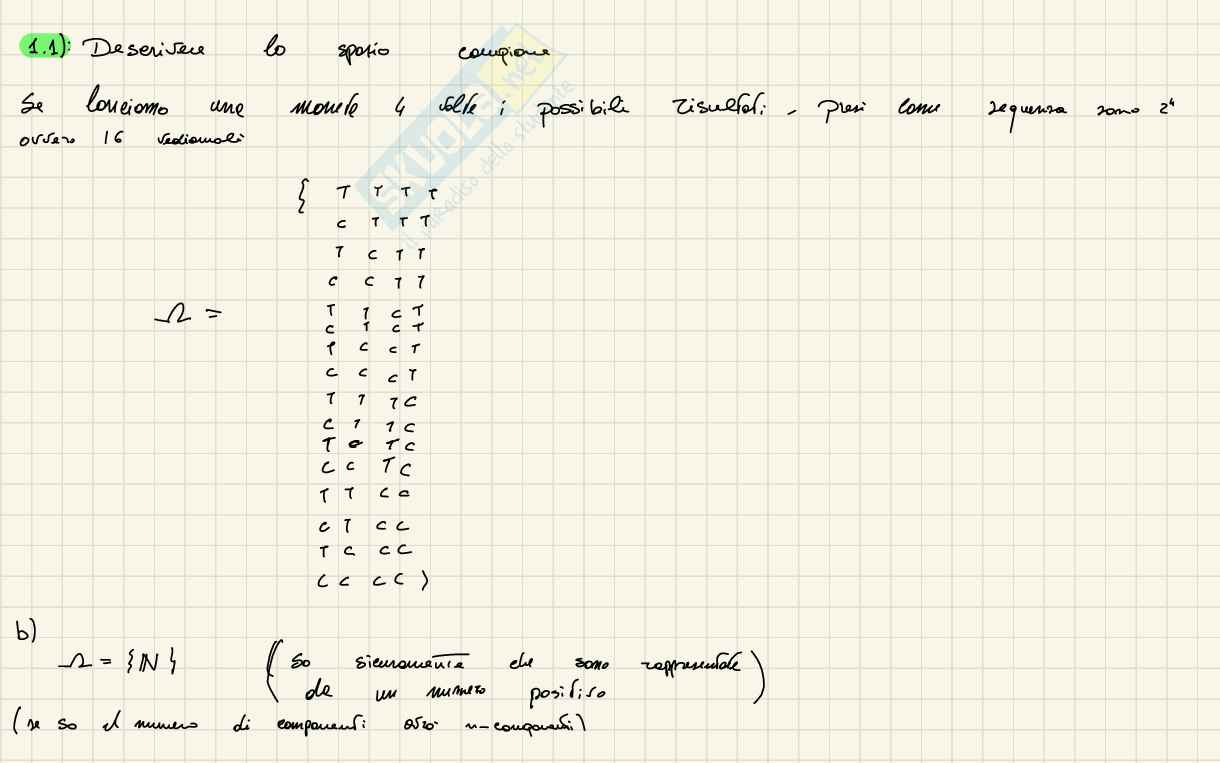 1.1): Descrivere lo spazio campione
Se lanciamo una moneta 4 volte i possibili risultati, presi come sequenza sono 2⁴
ovvero 16 vediamoli
{ T T T T
C T T T
T C T T
C C T T
Ω =
T T C T
C T C T
T C C T
C C C T
T T T C
C T T C
T C T C
C C T C
T T C C
C T C C
T C C C
C C C C }
b)
Ω = {ℕ} (so sicuramente che sono rappresentate
da un numero positivo)
(se so il numero di componenti avrò n-componenti)
SKUOLA.net
il paradiso dello studente